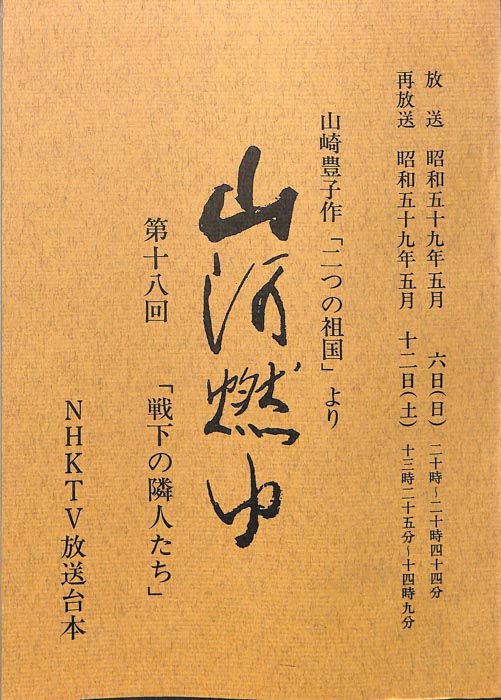 放　送　昭和五十九年五月　　六日(日)　二十時～二十時四十四分
再放送　昭和五十九年五月　十二日(土)　十三時二十五分～十四時九分
山崎豊子作「二つの祖国」より
山河燃ゆ
第十八回　「戦下の隣人たち」
NHKTV放送台本